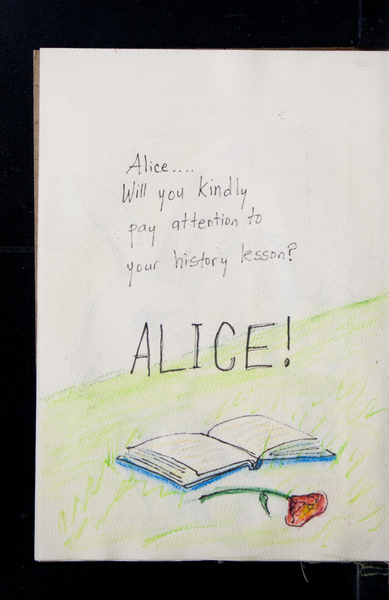 Alice....
Will you kindly
pay attention to
your history lesson?
ALICE!